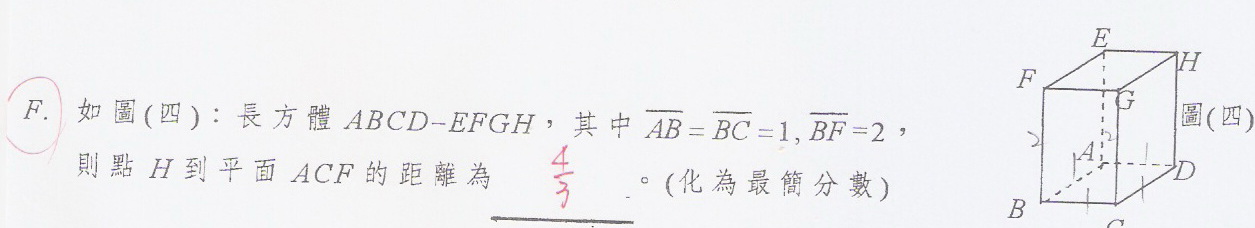 F. 如圖(四)：長方體 ABCD-EFGH，其中 AB = BC =1, BF =2，
則點 H 到平面 ACF 的距離為 4/3 。(化為最簡分數)
E
F
H
G
圖(四)
2
2
A
D
B
C